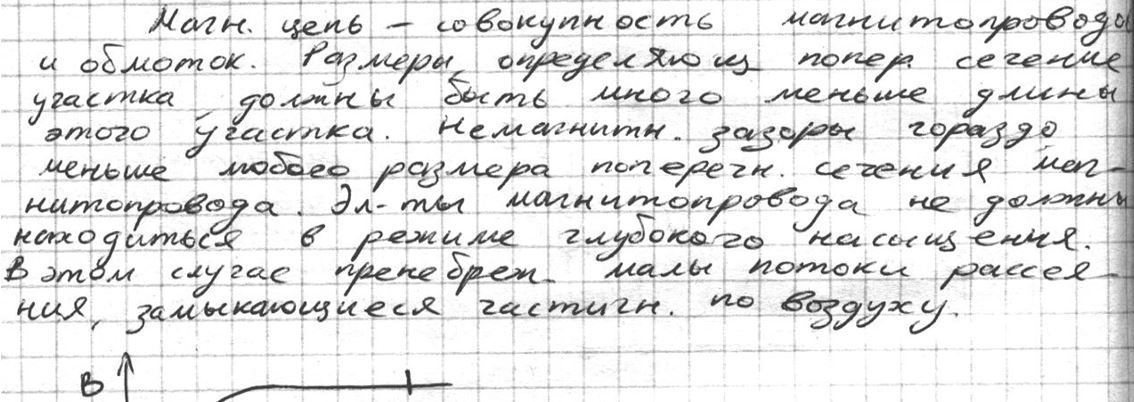 Магн. цепь – совокупность магнитопровода
и обмоток. Размеры, определяющ попер сечение
участка должны быть много меньше длины
этого участка. Немагнитн. зазоры гораздо
меньше любого размера поперечн. сечения маг-
нитопровода. Эл-ты магнитопровода не должны
находиться в режиме глубокого насыщения.
В этом случае пренебреж. малы потоки рассея-
ния, замыкающиеся частичн. по воздуху.
B